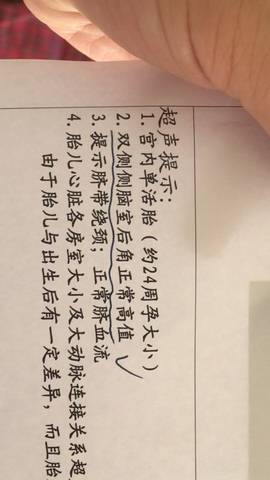 超声提示：
1. 宫内单活胎（约24周孕大小）
2. 双侧侧脑室后角正常高值
3. 提示脐带绕颈；正常脐血流
4. 胎儿心脏各房室大小及大动脉连接关系超
由于胎儿与出生后有一定差异，而且胎